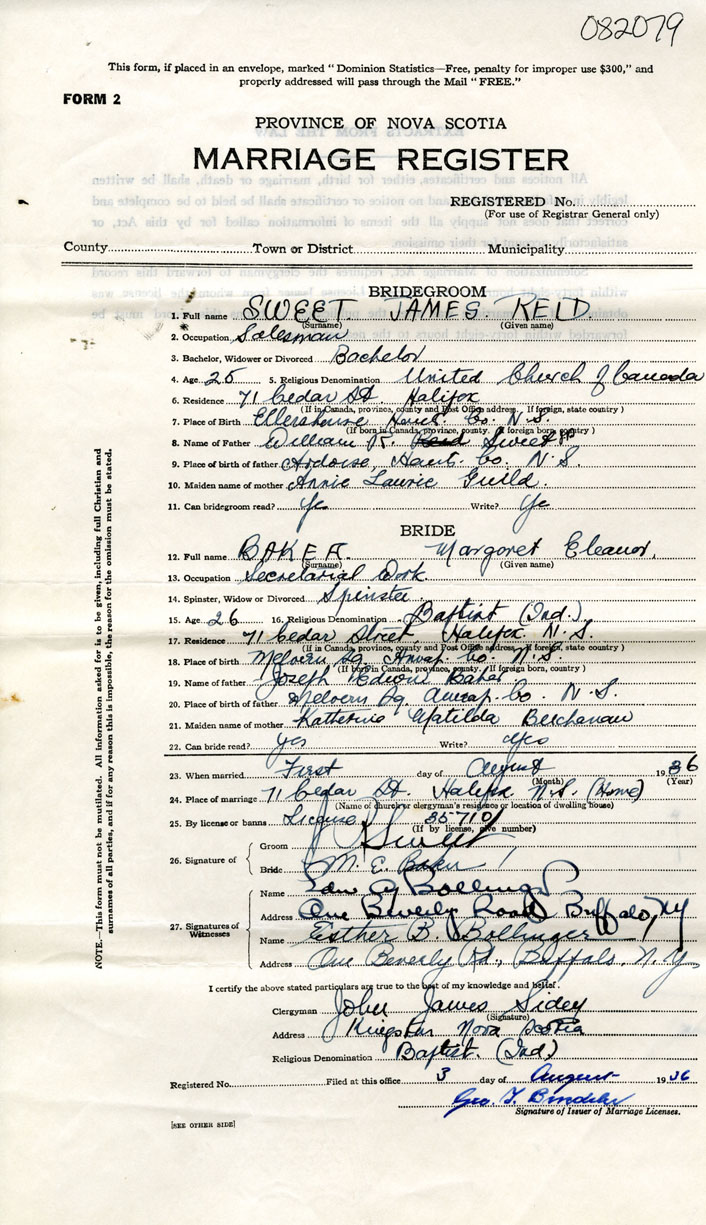 082079
This form, if placed in an envelope, marked "Dominion Statistics—Free, penalty for improper use $300," and
properly addressed will pass through the Mail "FREE."
FORM 2
PROVINCE OF NOVA SCOTIA
MARRIAGE REGISTER
REGISTERED No.
(For use of Registrar General only)
County Town or District Municipality
BRIDEGROOM
1. Full name SWEET JAMES REID.
(Surname) (Given name)
2. Occupation Salesman
3. Bachelor, Widower or Divorced Bachelor
4. Age 25 5. Religious Denomination United Church of Canada
6. Residence 71 Cedar St. Halifax
(If in Canada, province, county and Post Office address. If foreign, state country)
7. Place of Birth Ellershouse Hants Co. N.S.
(If born in Canada, province, county. If foreign born, country)
8. Name of Father William Sweet
9. Place of birth of father Ardoise, Hants. Co. N.S.
10. Maiden name of mother Annie Laurie Guild.
11. Can bridegroom read? Yes Write? Yes
BRIDE
12. Full name BAKER Margaret Eleanor,
(Surname) (Given name)
13. Occupation Secretarial Work
14. Spinster, Widow or Divorced Spinster
15. Age 26 16. Religious Denomination Baptist (Ind.)
17. Residence 71 Cedar Street, Halifax N.S.
(If in Canada, province, county and Post Office address. If foreign, state country)
18. Place of birth Melvern Sq. Annap. Co. N.S.
(If born in Canada, province, county. If foreign born, country)
19. Name of father Joseph Edwin Baker
20. Place of birth of father Melvern Sq. Annap. Co. N.S.
21. Maiden name of mother Katherine Matilda Buchanan
22. Can bride read? Yes Write? Yes
23. When married First day of August 1936
(Month) (Year)
24. Place of marriage 71 Cedar St. Halifax N.S. (Home)
(Name of church or clergyman's residence or location of dwelling house)
25. By license or banns License 35710
(If by license, give number)
26. Signature of
Groom Sweet
Bride M. E. Baker
27. Signatures of Witnesses
Name Bollinger
Address One Beverly Road Buffalo, NY
Name Esther B. Bollinger
Address One Beverly Rd., Buffalo, N.Y.
I certify the above stated particulars are true to the best of my knowledge and belief.
Clergyman John James Sidey
(Signature)
Address Kingston Nova Scotia
Religious Denomination Baptist. (Ind)
Registered No. Filed at this office 3 day of August 1936
Geo. T.
Signature of Issuer of Marriage Licenses.
[SEE OTHER SIDE]
NOTE.—This form must not be mutilated. All information asked for is to be given, including full Christian and
surnames of all parties, and if for any reason this is impossible, the reason for the omission must be stated.